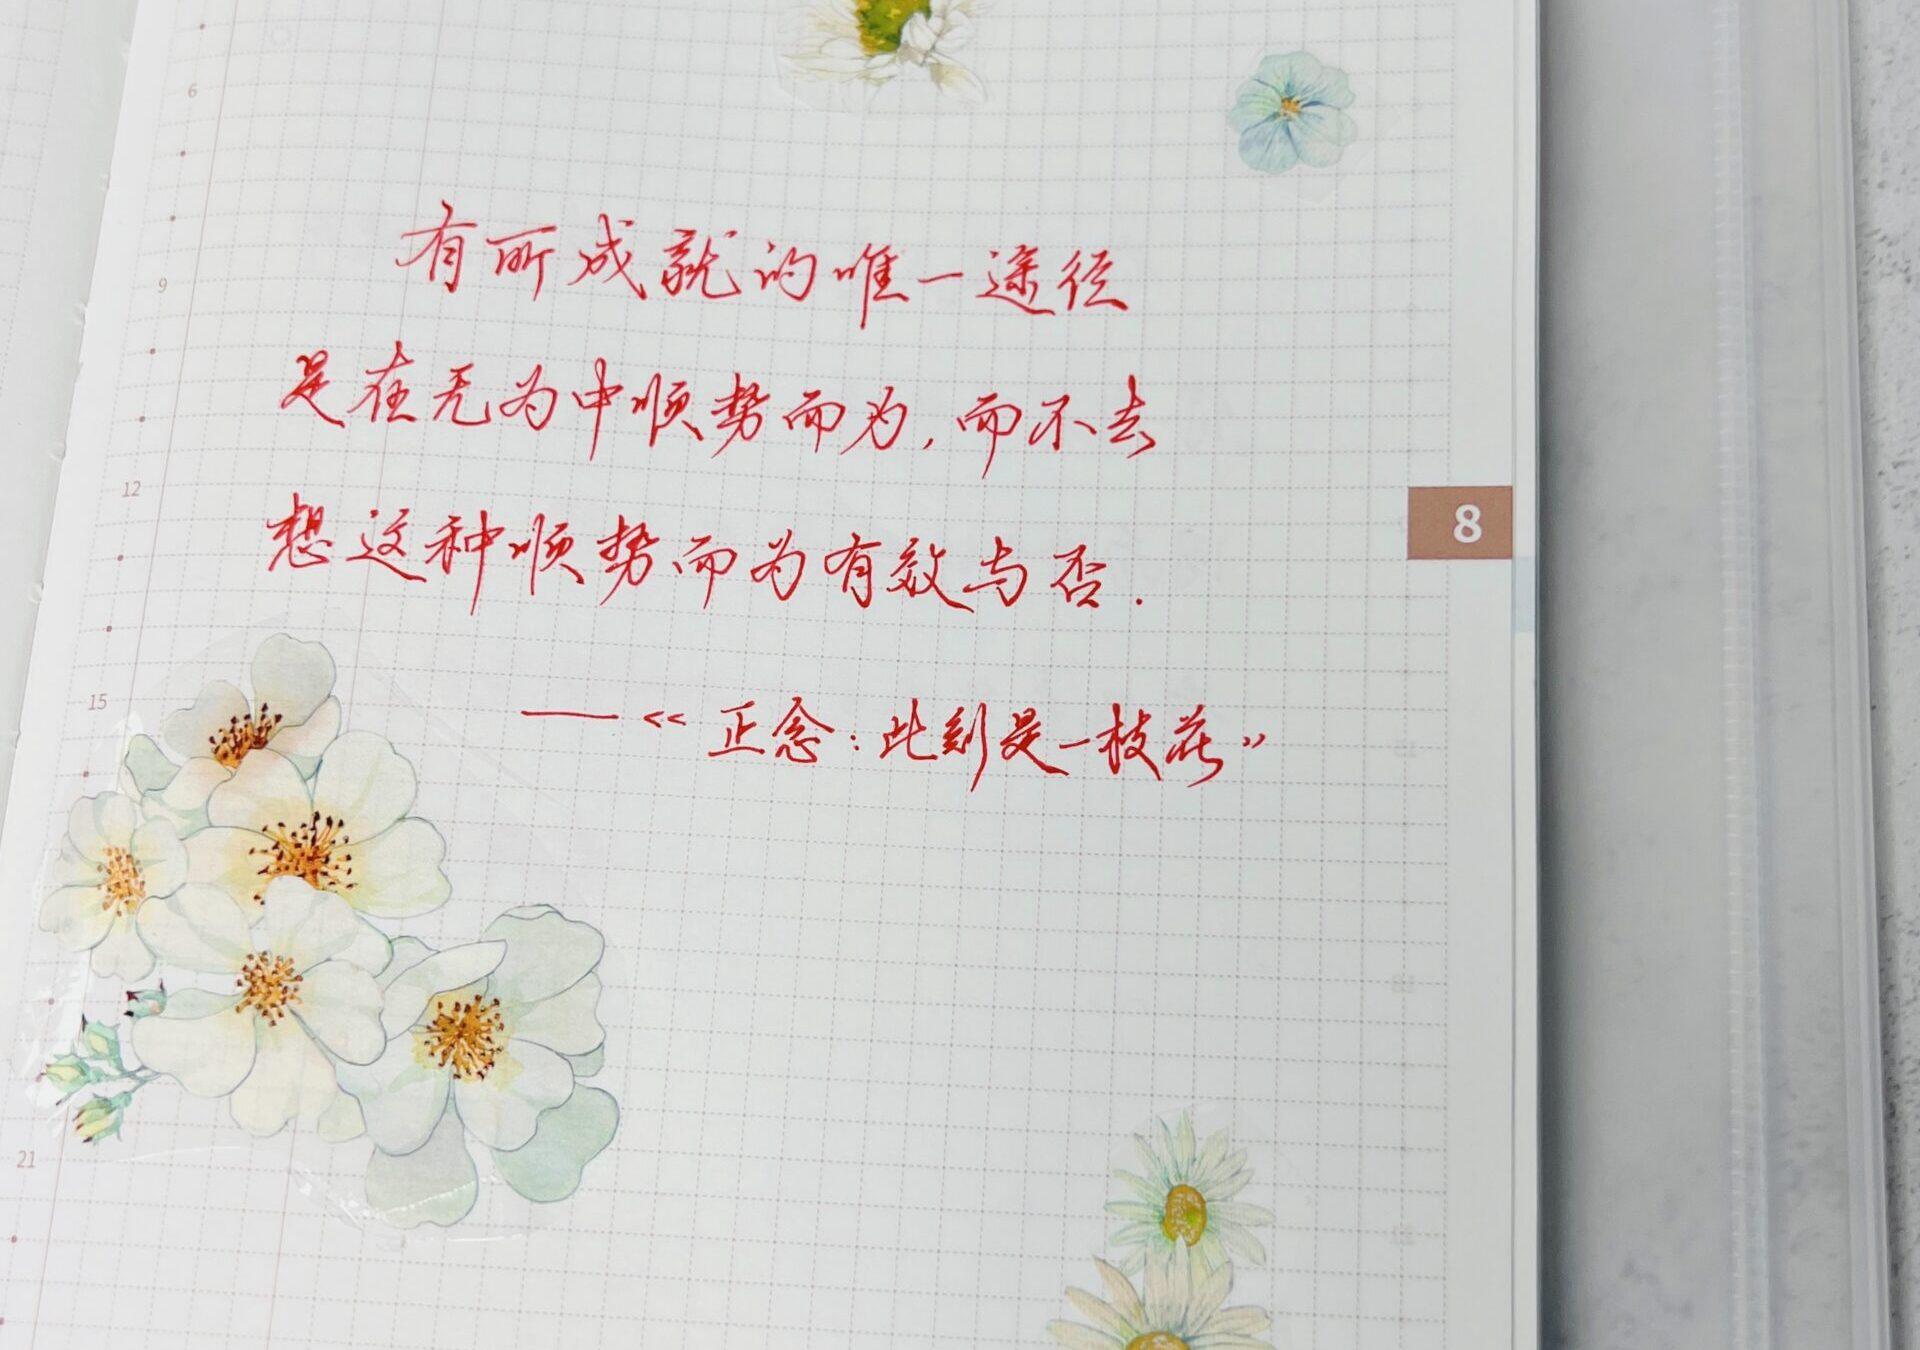 6
9
有所成就的唯一途径
是在无为中顺势而为,而不去
12
8
想这种顺势而为有效与否.
15
——《正念:此刻是一枝花》
21